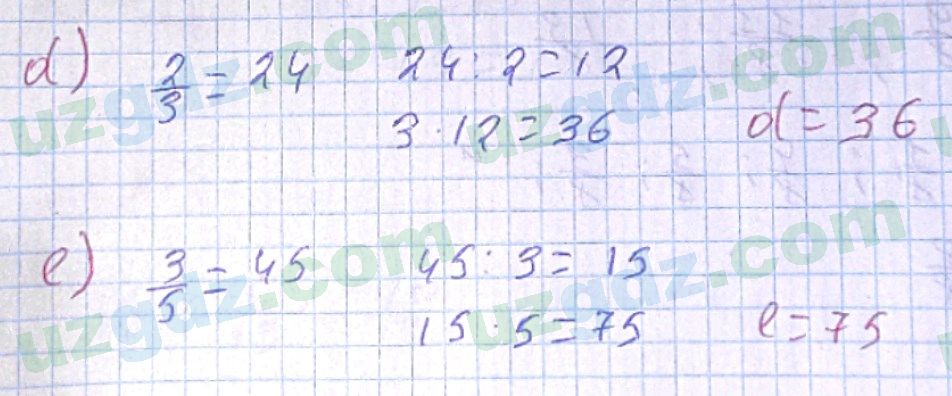 d) 2/3 = 24 24 : 2 = 12
3 · 12 = 36 d = 36
e) 3/5 = 45 45 : 3 = 15
15 · 5 = 75 e = 75
uzgdz.com
uzgdz.com
uzgdz.com
uzgdz.com